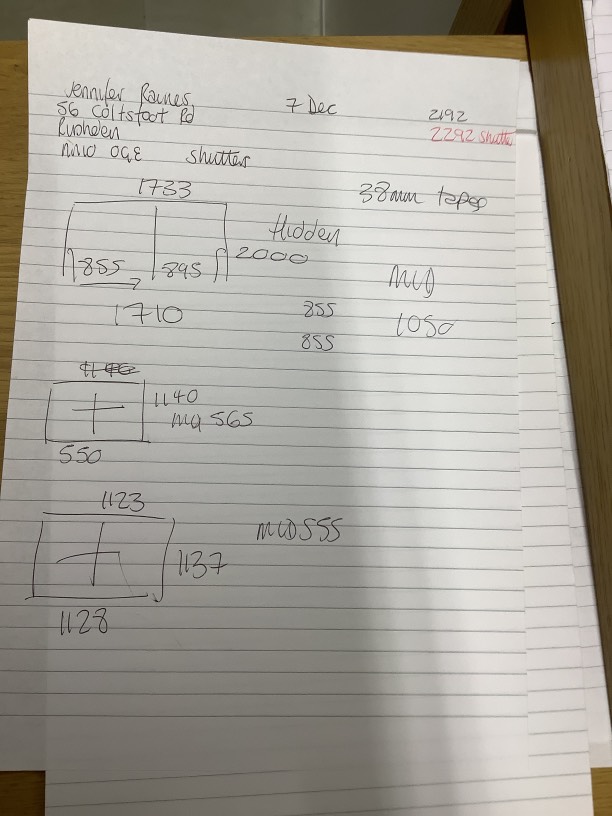 Jennifer Raines
7 Dec
56 Coltsfoot Rd
2192
Rushden
2292 Shutter
NN10 0GE shutter
1733
38mm tapes
Hidden
2000
855 895
MID
1710
855
1050
855
1140
MID 565
550
1123
MID 555
1137
1128